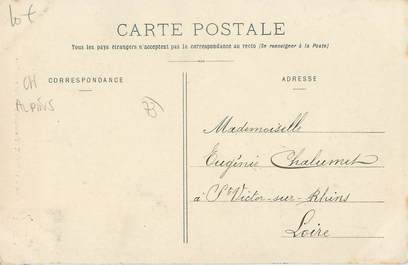 Lot
CARTE POSTALE
Tous les pays étrangers n'acceptent pas la correspondance au recto (Se renseigner à la Poste)
CORRESPONDANCE
ADRESSE
CH
Mademoiselle
Eugénie Chalumet
à St Victor-sur-Rhins
Loire